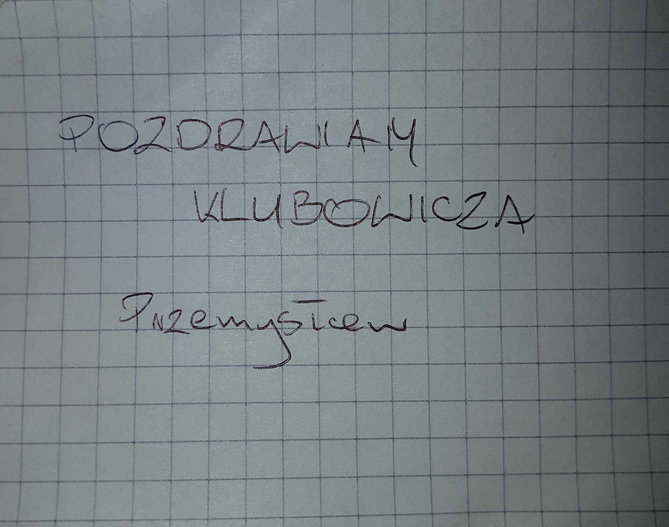 POZDRAWIAM
KLUBOWICZA
Przemysław